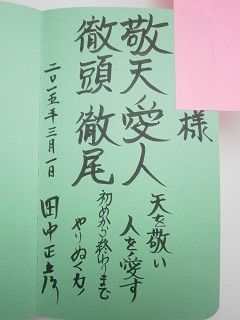 様
敬天愛人
天を敬い
人を愛す
徹頭徹尾
初めから終わりまで
やりぬく力
二〇一五年三月一日
田中正